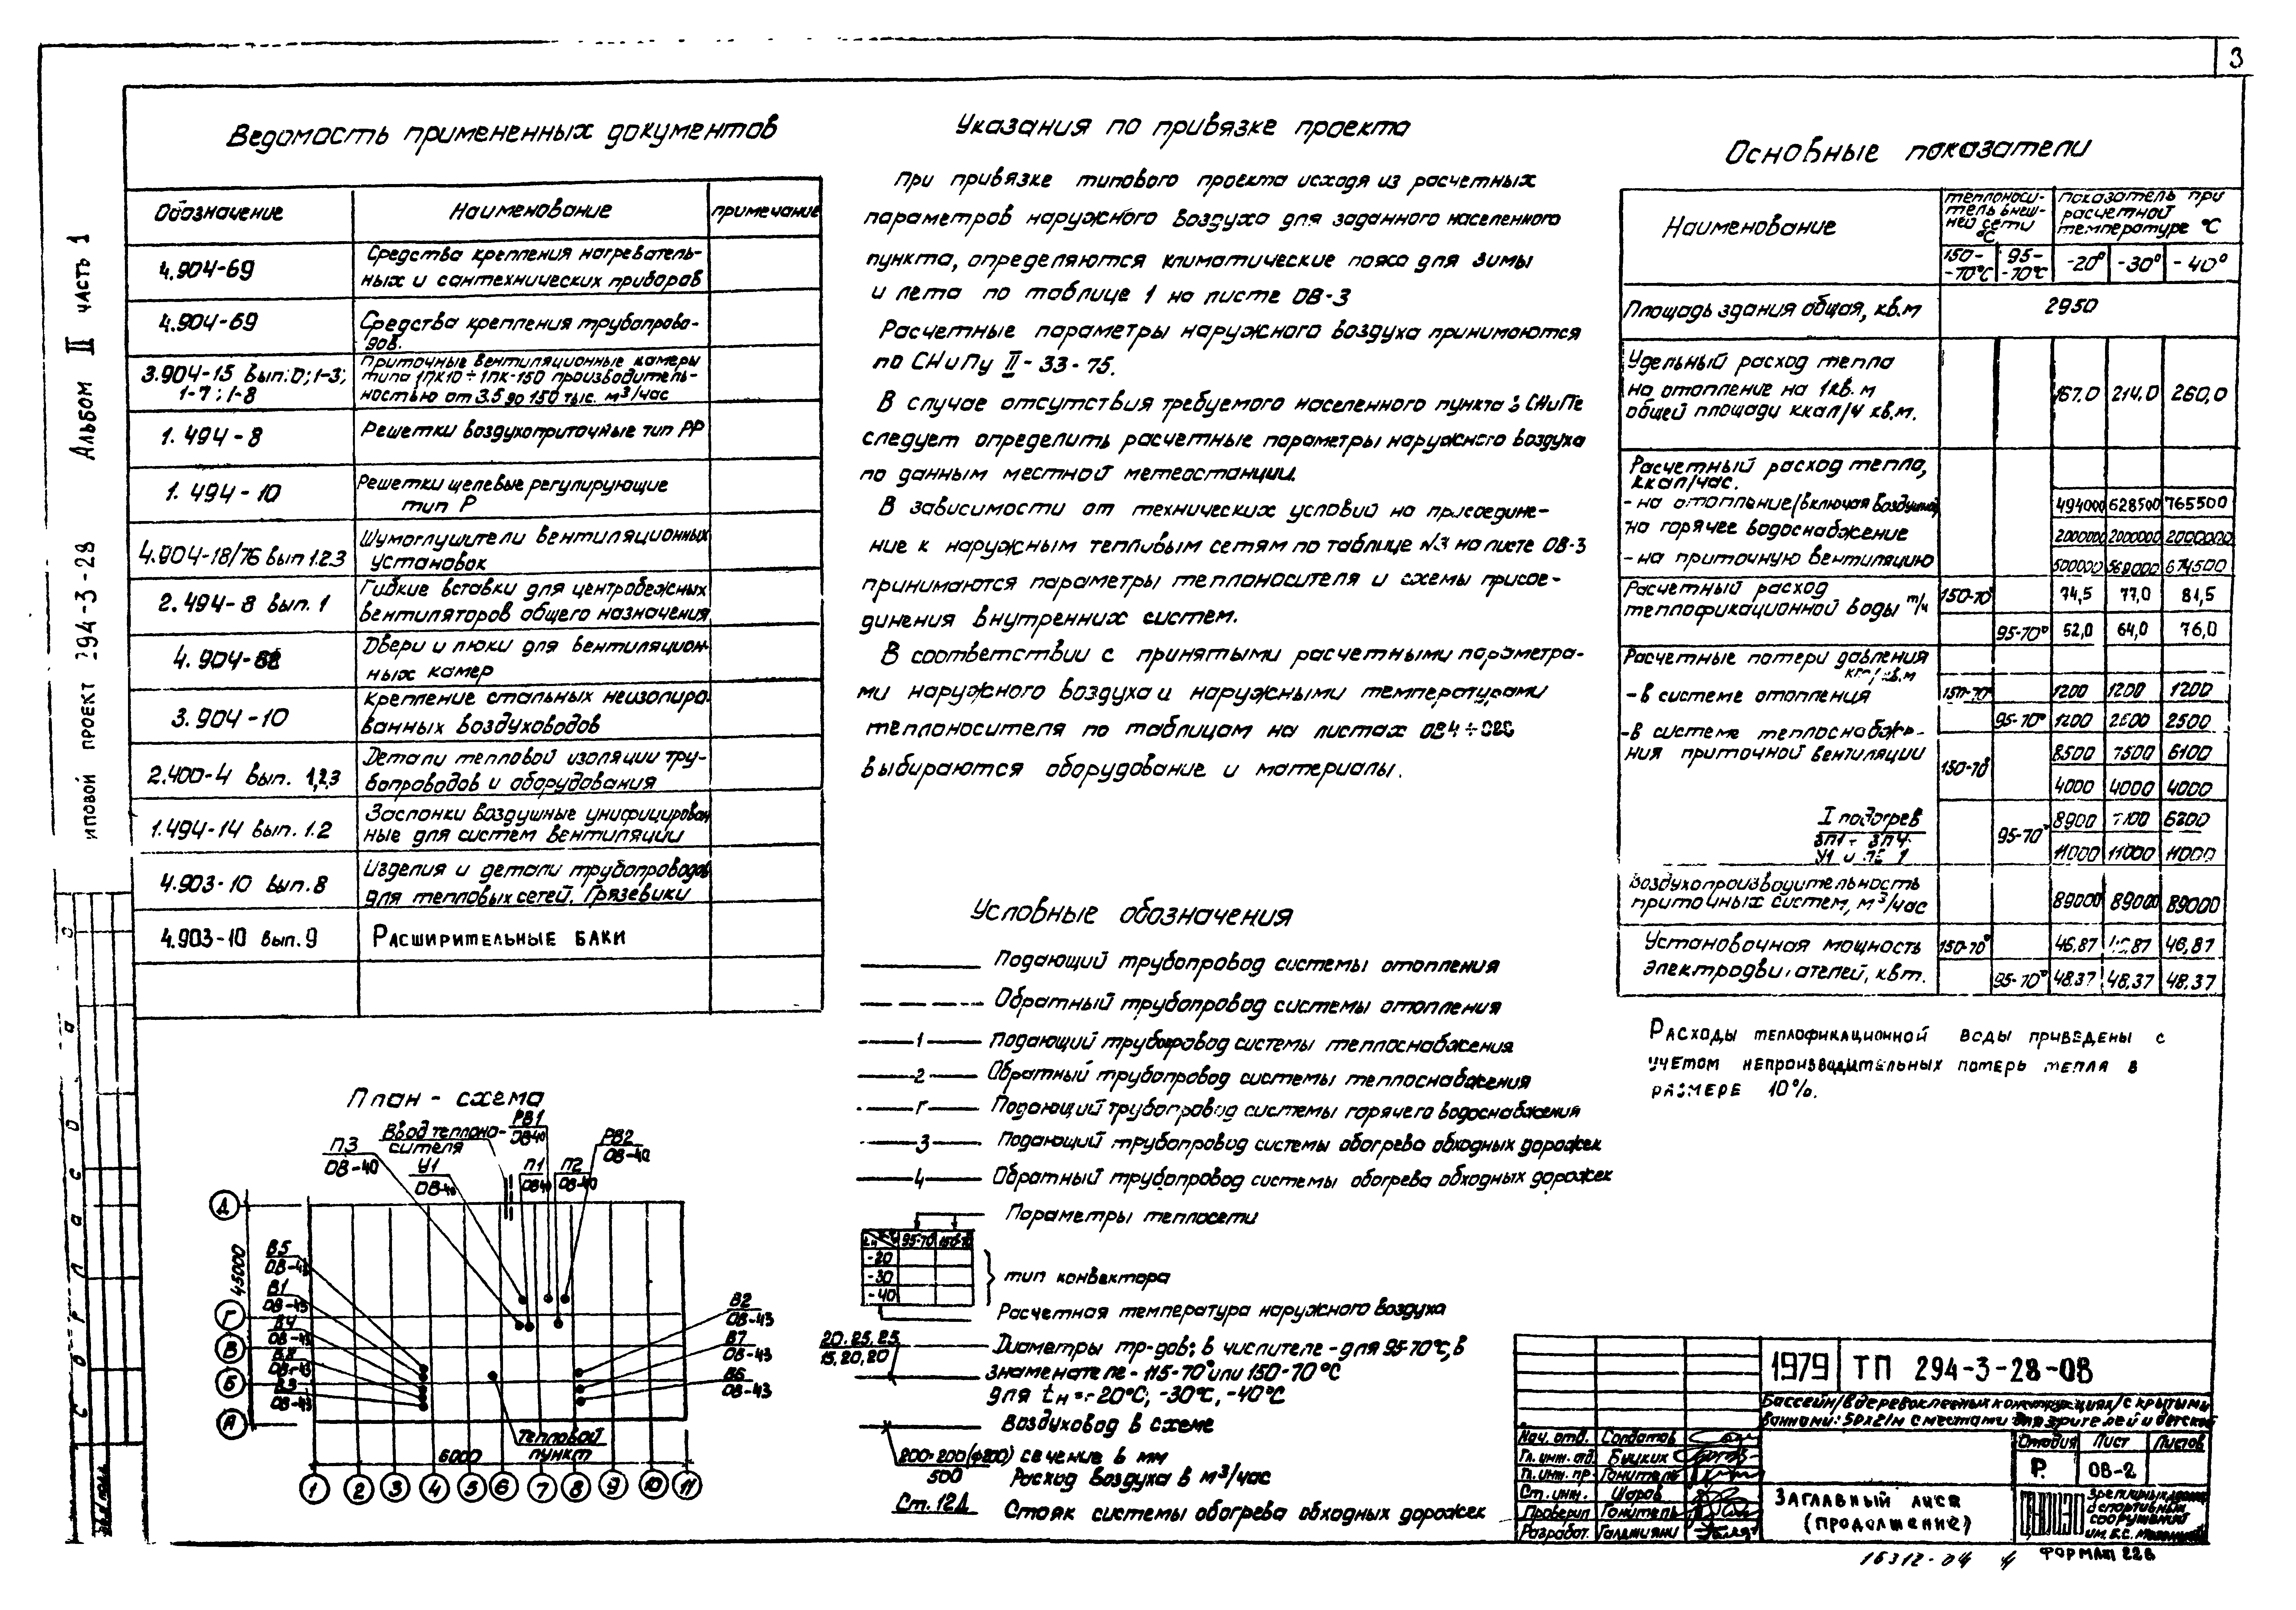 3
Альбом II часть 1
иповой проект 294-3-28
Ведомость примененных документов
Обозначение Наименование примечание
4.904-69 Средства крепления нагреватель-
ных и сантехнических приборов
4.904-69 Средства крепления трубопрово-
дов.
3.904-15 вып:0;1-3; 1-7; 1-8 Приточные вентиляционные камеры
типа 1ПК10÷1ПК-150 производитель-
ностью от 3.5 до 150 тыс. м³/час
1.494-8 Решетки воздухоприточные тип РР
1.494-10 Решетки щелевые регулирующие
тип Р
4.904-18/76 вып 1.2.3 Шумоглушители вентиляционных
установок
2.494-8 вып. 1 Гибкие вставки для центробежных
вентиляторов общего назначения
4.904- Двери и люки для вентиляцион-
ных камер
3.904-10 крепление стальных неизолиро-
ванных воздуховодов
2.400-4 вып. 1,2,3 Детали тепловой изоляции тру-
бопроводов и оборудования
1.494-14 вып. 1.2 Заслонки воздушные унифицирован
ные для систем вентиляции
4.903-10 вып. 8 Изделия и детали трубопроводов
для тепловых сетей. Грязевики
4.903-10 вып. 9 Расширительные баки
План-схема
П3
ОВ-40
Ввод теплоно-
сителя
У1
ОВ-40
РВ1
ОВ40
П1
ОВ40
П2
ОВ-40
РВ2
ОВ-40
Д
45000
Г
В
Б
А
В5
ОВ-43
В1
ОВ-43
В4
ОВ-43
В8
ОВ-43
В3
ОВ-43
В2
ОВ-43
В7
ОВ-43
В6
ОВ-43
тепловой
пункт
6000
1 2 3 4 5 6 7 8 9 10 11
Указания по привязке проекта
При привязке типового проекта исходя из расчетных
параметров наружного воздуха для заданного населенного
пункта, определяются климатические пояса для зимы
и лета по таблице 1 на листе ОВ-3
Расчетные параметры наружного воздуха принимаются
по СНиПу II-33-75.
В случае отсутствия требуемого населенного пункта в СНиПе
следует определить расчетные параметры наружного воздуха
по данным местной метеостанции.
В зависимости от технических условий на присоедине-
ние к наружным тепловым сетям по таблице №3 на листе ОВ-3
принимаются параметры теплоносителя и схемы присое-
динения внутренних систем.
В соответствии с принятыми расчетными параметра-
ми наружного воздуха и наружными температурами
теплоносителя по таблицам на листах
выбираются оборудование и материалы.
Условные обозначения
Подающий трубопровод системы отопления
Обратный трубопровод системы отопления
1 Подающий трубопровод системы теплоснабжения
2 Обратный трубопровод системы теплоснабжения
Г Подающий трубопровод системы горячего водоснабжения
3 Подающий трубопровод системы обогрева обходных дорожек
4 Обратный трубопровод системы обогрева обходных дорожек
Параметры теплосети
95-70 150-70
-20
-30
-40
тип конвектора
Расчетная температура наружного воздуха
20.25.25
15,20,20
Диаметры тр-дов: в числителе - для 95-70°С, в
знаменателе - 115-70° или 150-70°С
для tн=-20°С; -30°С, -40°С
Воздуховод в схеме
200×200(ф200) сечение в мм
500 Расход воздуха в м³/час
Ст. 12Д Стояк системы обогрева обходных дорожек
Основные показатели
Наименование
теплоноси-
тель внеш-
ней сети
°С
показатель при
расчетной
температуре °С
150-
-70°С 95-
-70°С -20° -30° -40°
Площадь здания общая, кв.м 2950
Удельный расход тепла
на отопление на 1кв.м
общей площади ккал/ч кв.м. 167.0 214.0 260,0
Расчетный расход тепла,
ккал/час.
-на отопление/включая воздушное/ 494000 628500 765500
на горячее водоснабжение 2000000 2000000 2000000
-на приточную вентиляцию 500000 568000 674500
Расчетный расход
теплофикационной воды т/ч 150-70° 74,5 77,0 81,5
95-70° 52,0 64,0 76,0
Расчетные потери давления
-в системе отопления 150-70° 1200 1200 1200
95-70° 1200 2500
-в системе теплоснабже-
ния приточной вентиляции 150-70° 8500 7500 6100
4000 4000 4000
I подогрев 95-70° 8900 6200
11000 11000 11000
Воздухопроизводительность
приточных систем, м³/час 89000 89000 89000
Установочная мощность
электродвигателей, квт. 150-70° 46,87 46,87 46,87
95-70° 48.37 48,37 48.37
Расходы теплофикационной воды приведены с
учетом непроизводительных потерь тепла в
размере 10%.
1979 ТП 294-3-28-ОВ
Бассейн/в деревоклееных конструкциях/с крытыми
ваннами: 50х21м с местами для зрителей и детской
Нач. отд. Солдатов
Гл. инж. отд. Быцких
Гл. инж. пр. Гонитель
Ст. инж. Шаров
Проверил Гонитель
Разработ.
Стадия Лист Листов
Р. ОВ-2
Заглавный лист
(продолжение)
зрелищных зданий
и спортивных
сооружений
им. Б.С. Мезенцева
16312-04 4 Формат 22в